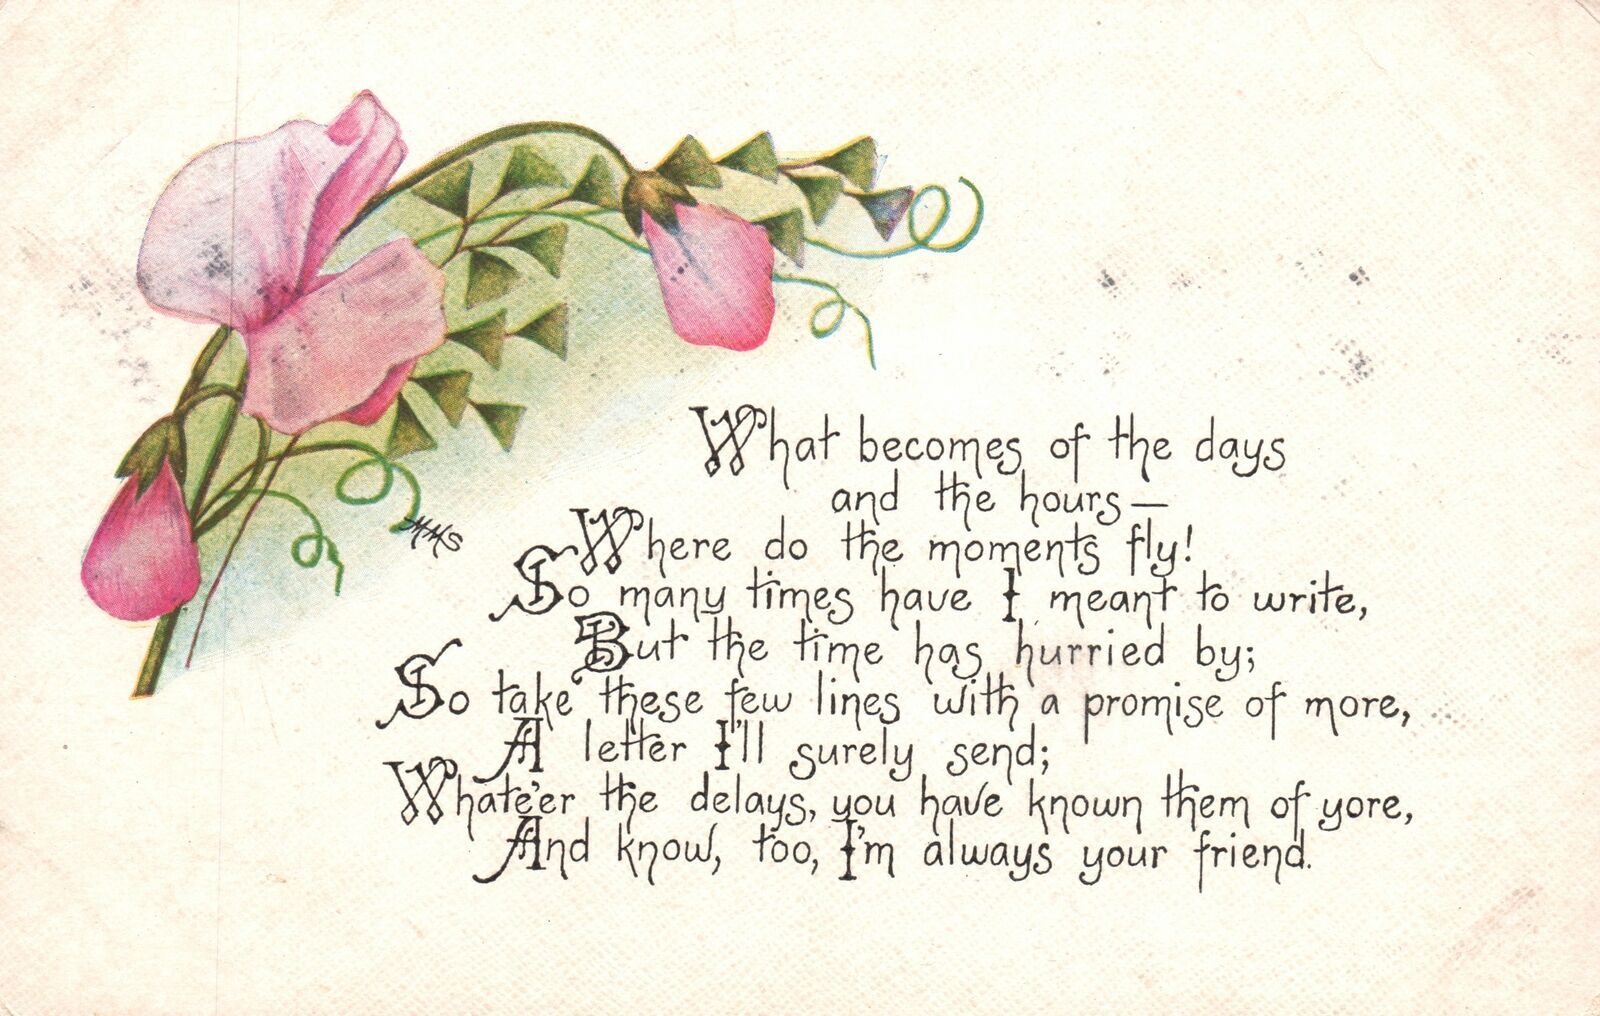 What becomes of the days
and the hours—
Where do the moments fly!
So many times have I meant to write,
But the time has hurried by;
So take these few lines with a promise of more,
A letter I'll surely send;
Whate'er the delays, you have known them of yore,
And know, too, I'm always your friend.
MMS